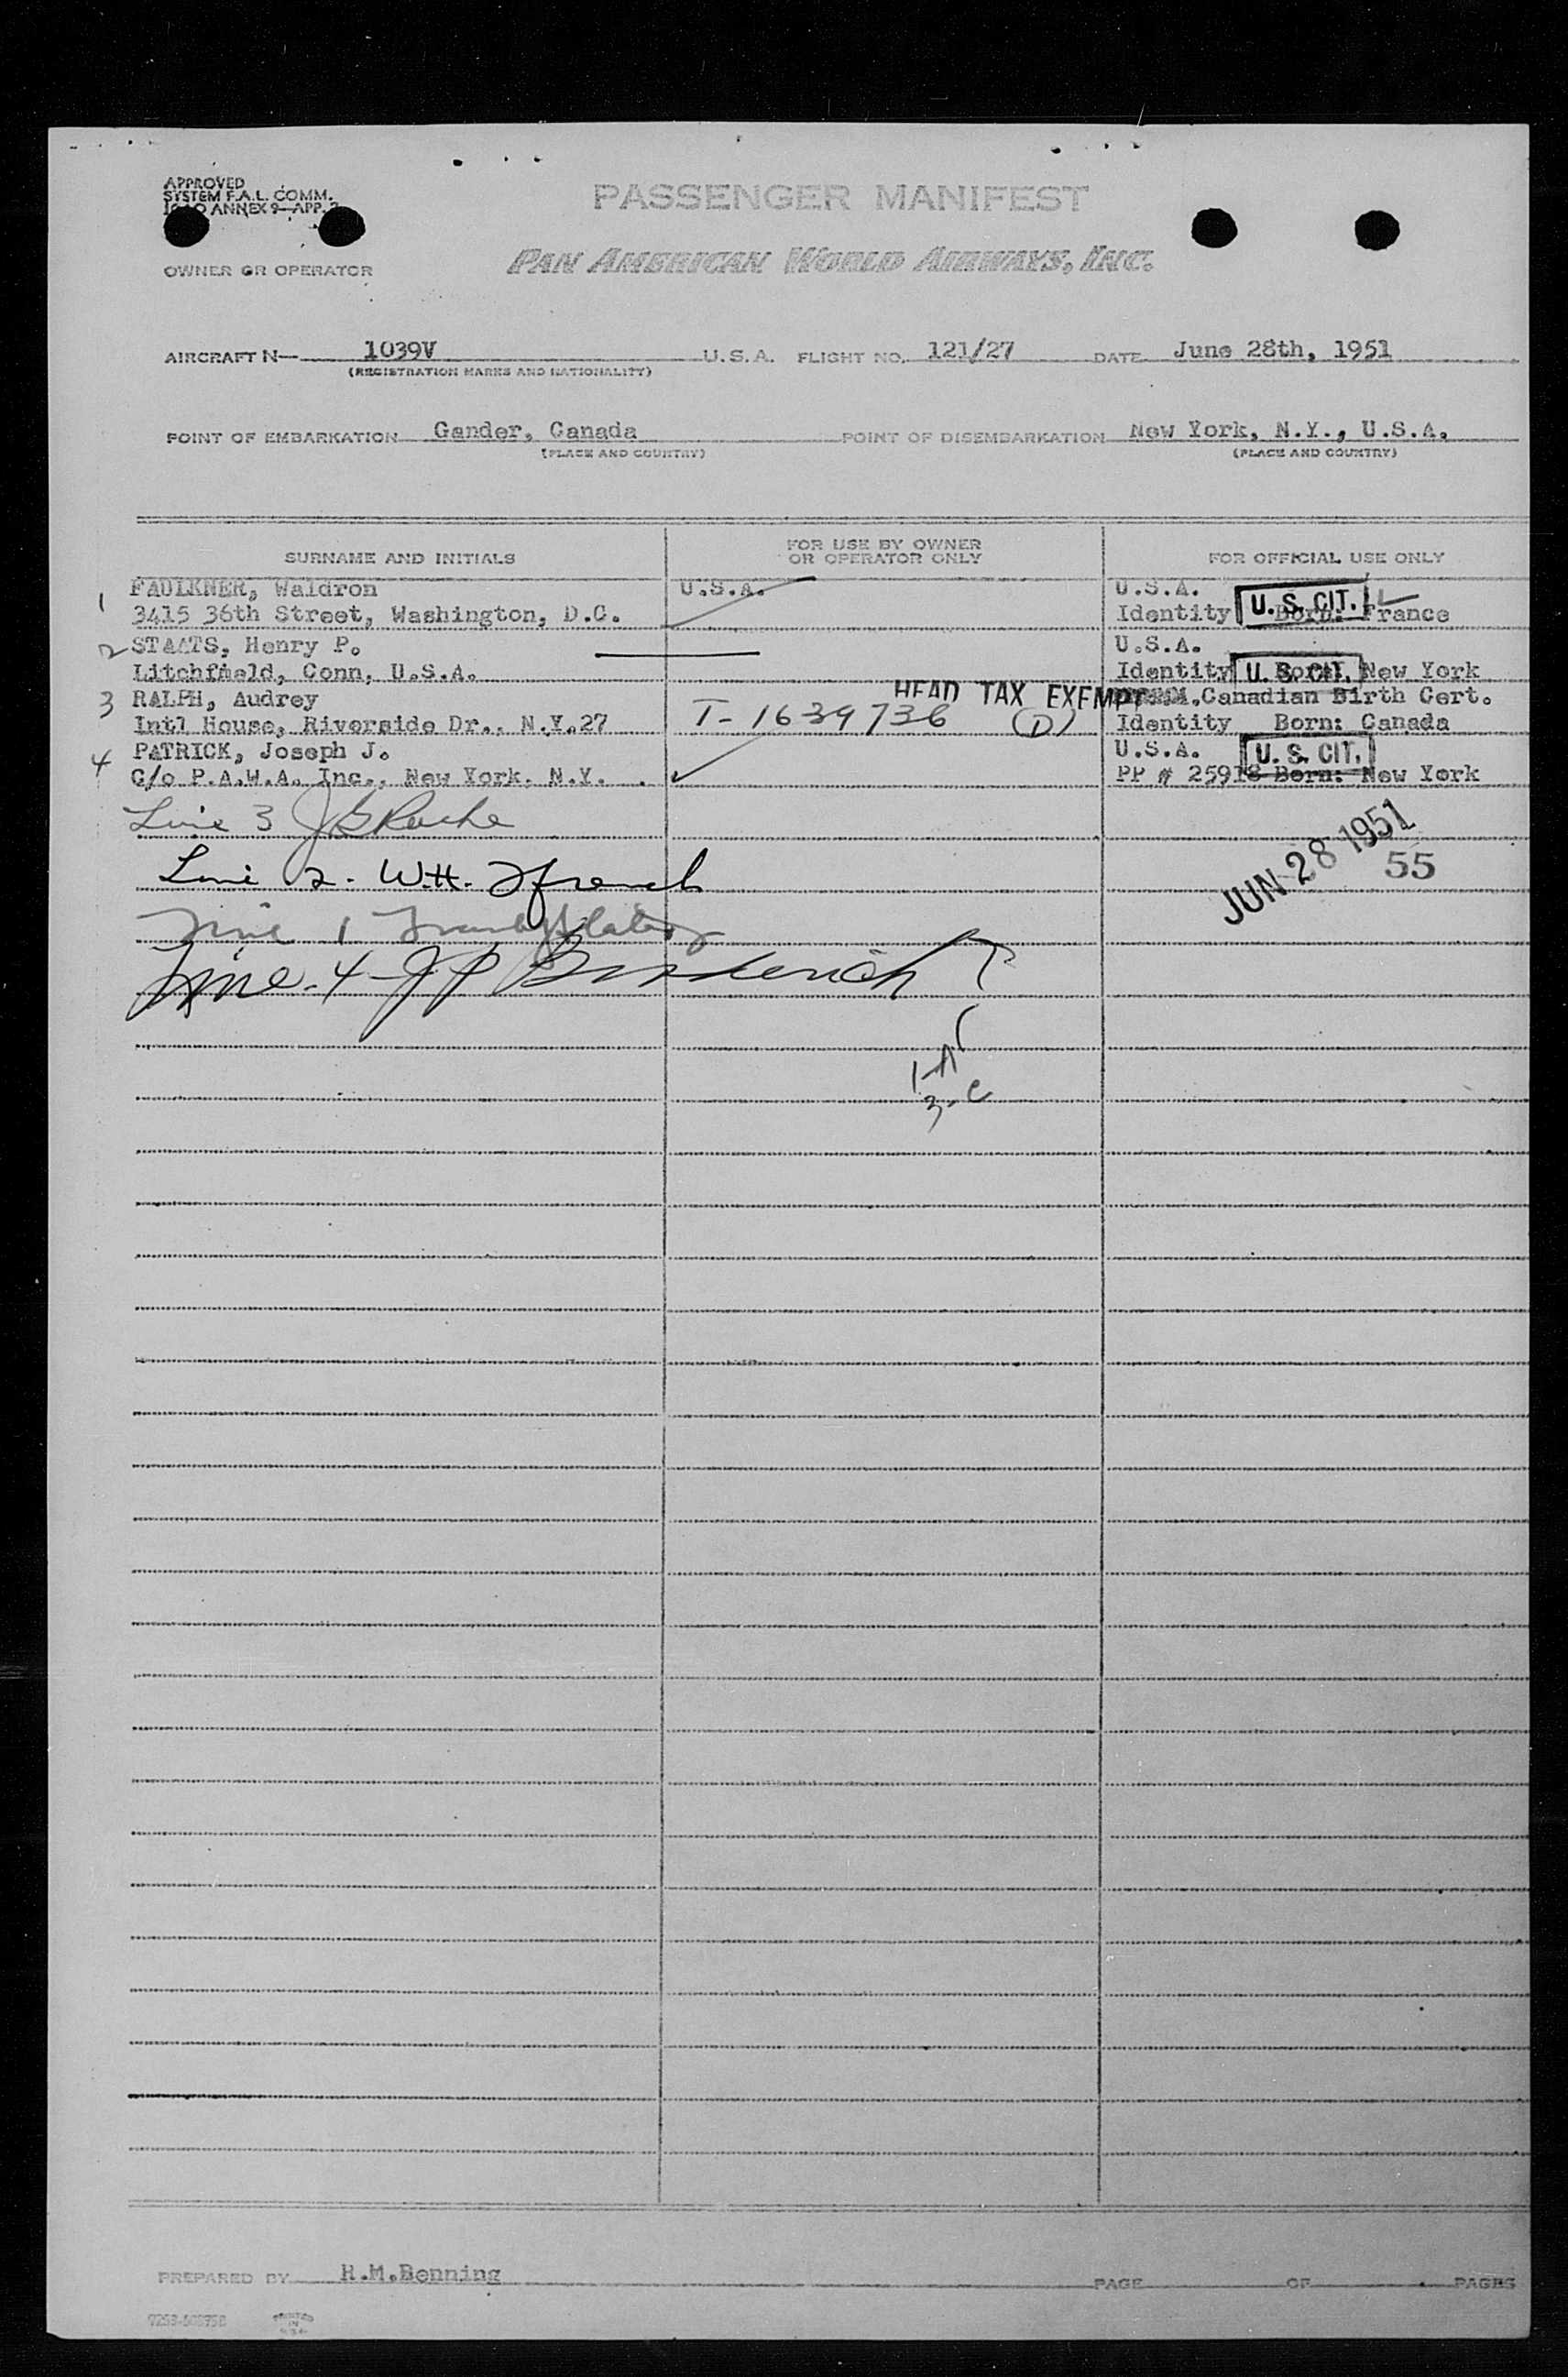 APPROVED
SYSTEM F.A.L. COMM.
ANNEX 9-APP. 2
PASSENGER MANIFEST
OWNER OR OPERATOR
PAN AMERICAN WORLD AIRWAYS, INC.
AIRCRAFT N— 1039V U.S.A. FLIGHT NO. 121/27 DATE June 28th, 1951
(REGISTRATION MARKS AND NATIONALITY)
POINT OF EMBARKATION Gander, Canada POINT OF DISEMBARKATION New York, N.Y., U.S.A.
(PLACE AND COUNTRY) (PLACE AND COUNTRY)
SURNAME AND INITIALS
FOR USE BY OWNER
OR OPERATOR ONLY
FOR OFFICIAL USE ONLY
1 FAULKNER, Waldron U.S.A. U.S.A.
3415 36th Street, Washington, D.C. Identity U. S. CIT. Born: France
2 STAATS, Henry P. U.S.A.
Litchfield, Conn, U.S.A. Identity U. S. CIT. Born: New York
3 RALPH, Audrey HEAD TAX EXEMPT Canadian Birth Cert.
Intl House, Riverside Dr., N.Y.27 T-1639736 (D) Identity Born: Canada
4 PATRICK, Joseph J. U.S.A. U. S. CIT.
C/o P.A.W.A. Inc., New York, N.Y. PP # 25918 Born: New York
Line 3 J Roche
Line 2. W.H. French
Line 1 Frank
Line. 4 - J P
JUN 28 1951
55
3-C
PREPARED BY H.M.Benning PAGE OF PAGES
PRINTED
IN
U.S.A.